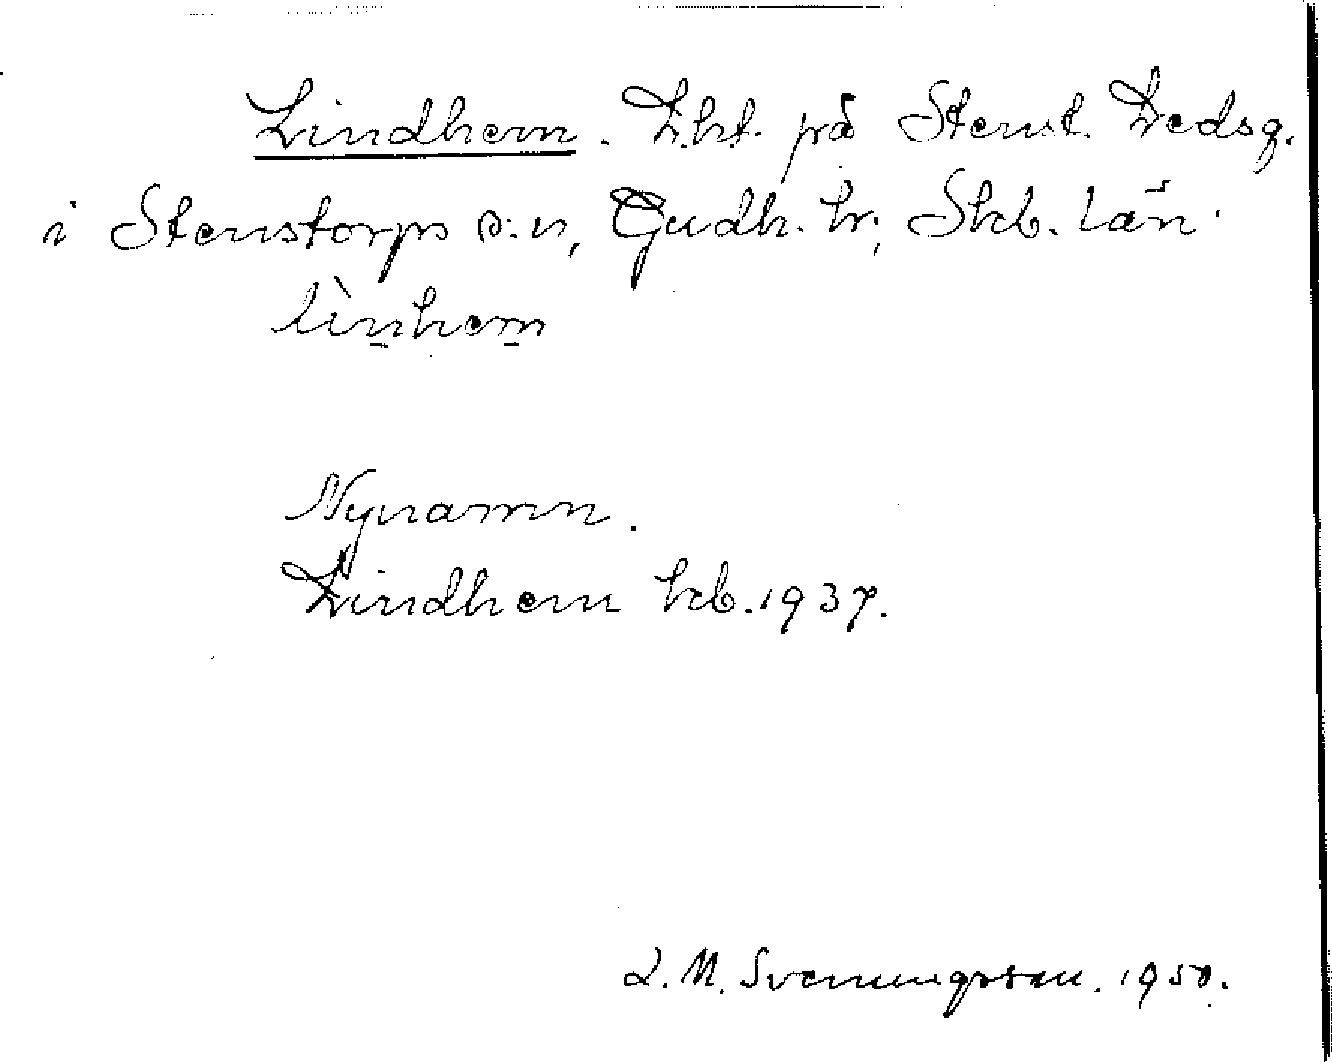 Lindhem. Lht. på Stenst. Ledsg.
i Stenstorps s:n, Gudh. hr; Skb. län.
lìnhem
Nynamn.
Lindhem kb. 1937.
L. M. Svenungsson. 1950.